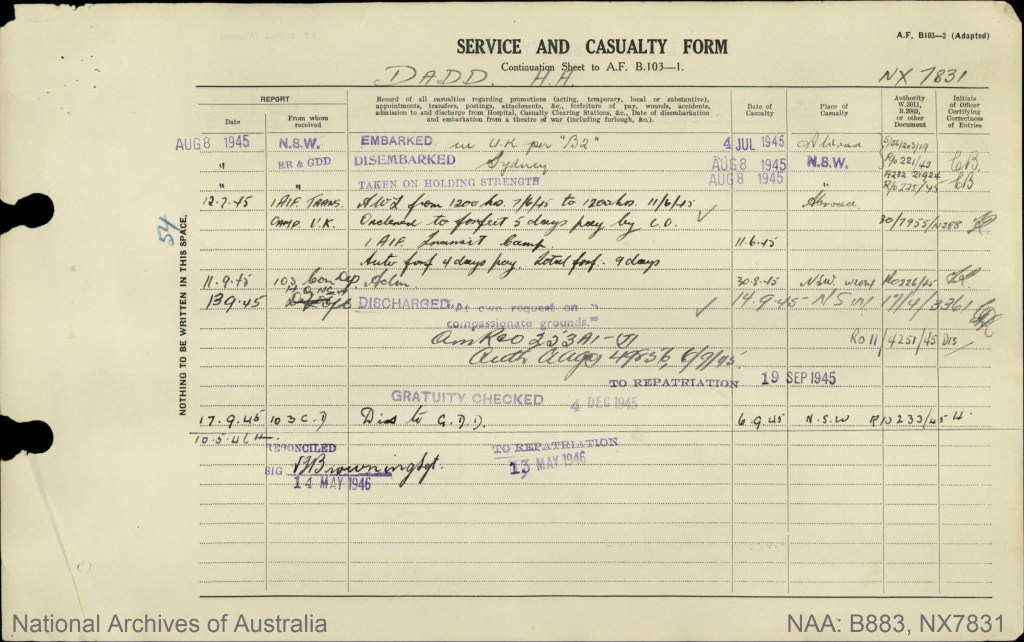 A.F. B103—2 (Adapted)
SERVICE AND CASUALTY FORM
Continuation Sheet to A.F. B.103—1.
DADD. H.A. NX 7831
REPORT
Date
From whom received
Record of all casualties regarding promotions (acting, temporary, local or substantive),
appointments, transfers, postings, attachments, &c., forfeiture of pay, wounds, accidents,
admission to and discharge from Hospital, Casualty Clearing Stations, &c., Date of disembarkation
and embarkation from a theatre of war (including furlough, &c.).
Date of Casualty
Place of Casualty
Authority W.3011, B.2069, or other Document
Initials of Officer Certifying Correctness of Entries
AUG 8 1945 N.S.W. EMBARKED in U.K per "B2" 4 JUL 1945 Abroad
" ER & GDD DISEMBARKED Sydney AUG 8 1945 N.S.W. R/o 221/45 CB.
" " TAKEN ON HOLDING STRENGTH AUG 8 1945 " A282 21924 R/o 225/45 CB
12.7.45 1 AIF TRANS. AWL from 1200 hs. 7/6/45 to 1200 hs. 11/6/45 Abroad
CAMP. U.K. Ordered to forfeit 5 days pay by C.O. 30/7955/N288
1 AIF. Transit Camp. 11.6.45
Auto forf 4 days pay. Total forf- 9 days
11.9.45 103 Con Dep. Adm 30.8.45 N.S.W. Ro226/45
13 9.45 DISCHARGED "At own request on 14.9.45 17/4/3361
compassionate grounds."
253A1
Ro 11/4251/45 DIS
TO REPATRIATION 19 SEP 1945
GRATUITY CHECKED 4 DEC 1945
17.9.45 103 C.D Dis to G.D.D. 6.9.45 N.S.W R10233/45
10.5.46
RECONCILED TO REPATRIATION
SIG Browning Sgt. 13 MAY 1946
14 MAY 1946
NOTHING TO BE WRITTEN IN THIS SPACE.
54
National Archives of Australia NAA: B883, NX7831